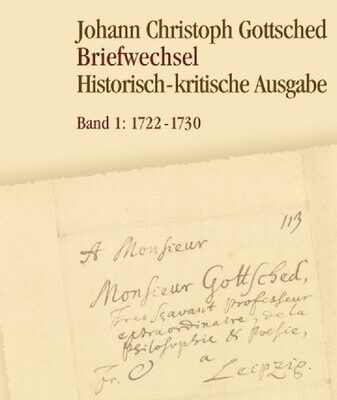 Johann Christoph Gottsched
Briefwechsel
Historisch-kritische Ausgabe
Band 1: 1722-1730
113
A Monsieur
Monsieur Gottsched,
Tres sçavant Professeur
extraordinaire, de la
Philosophie & Poesie,
Fr. a
Leipzig.